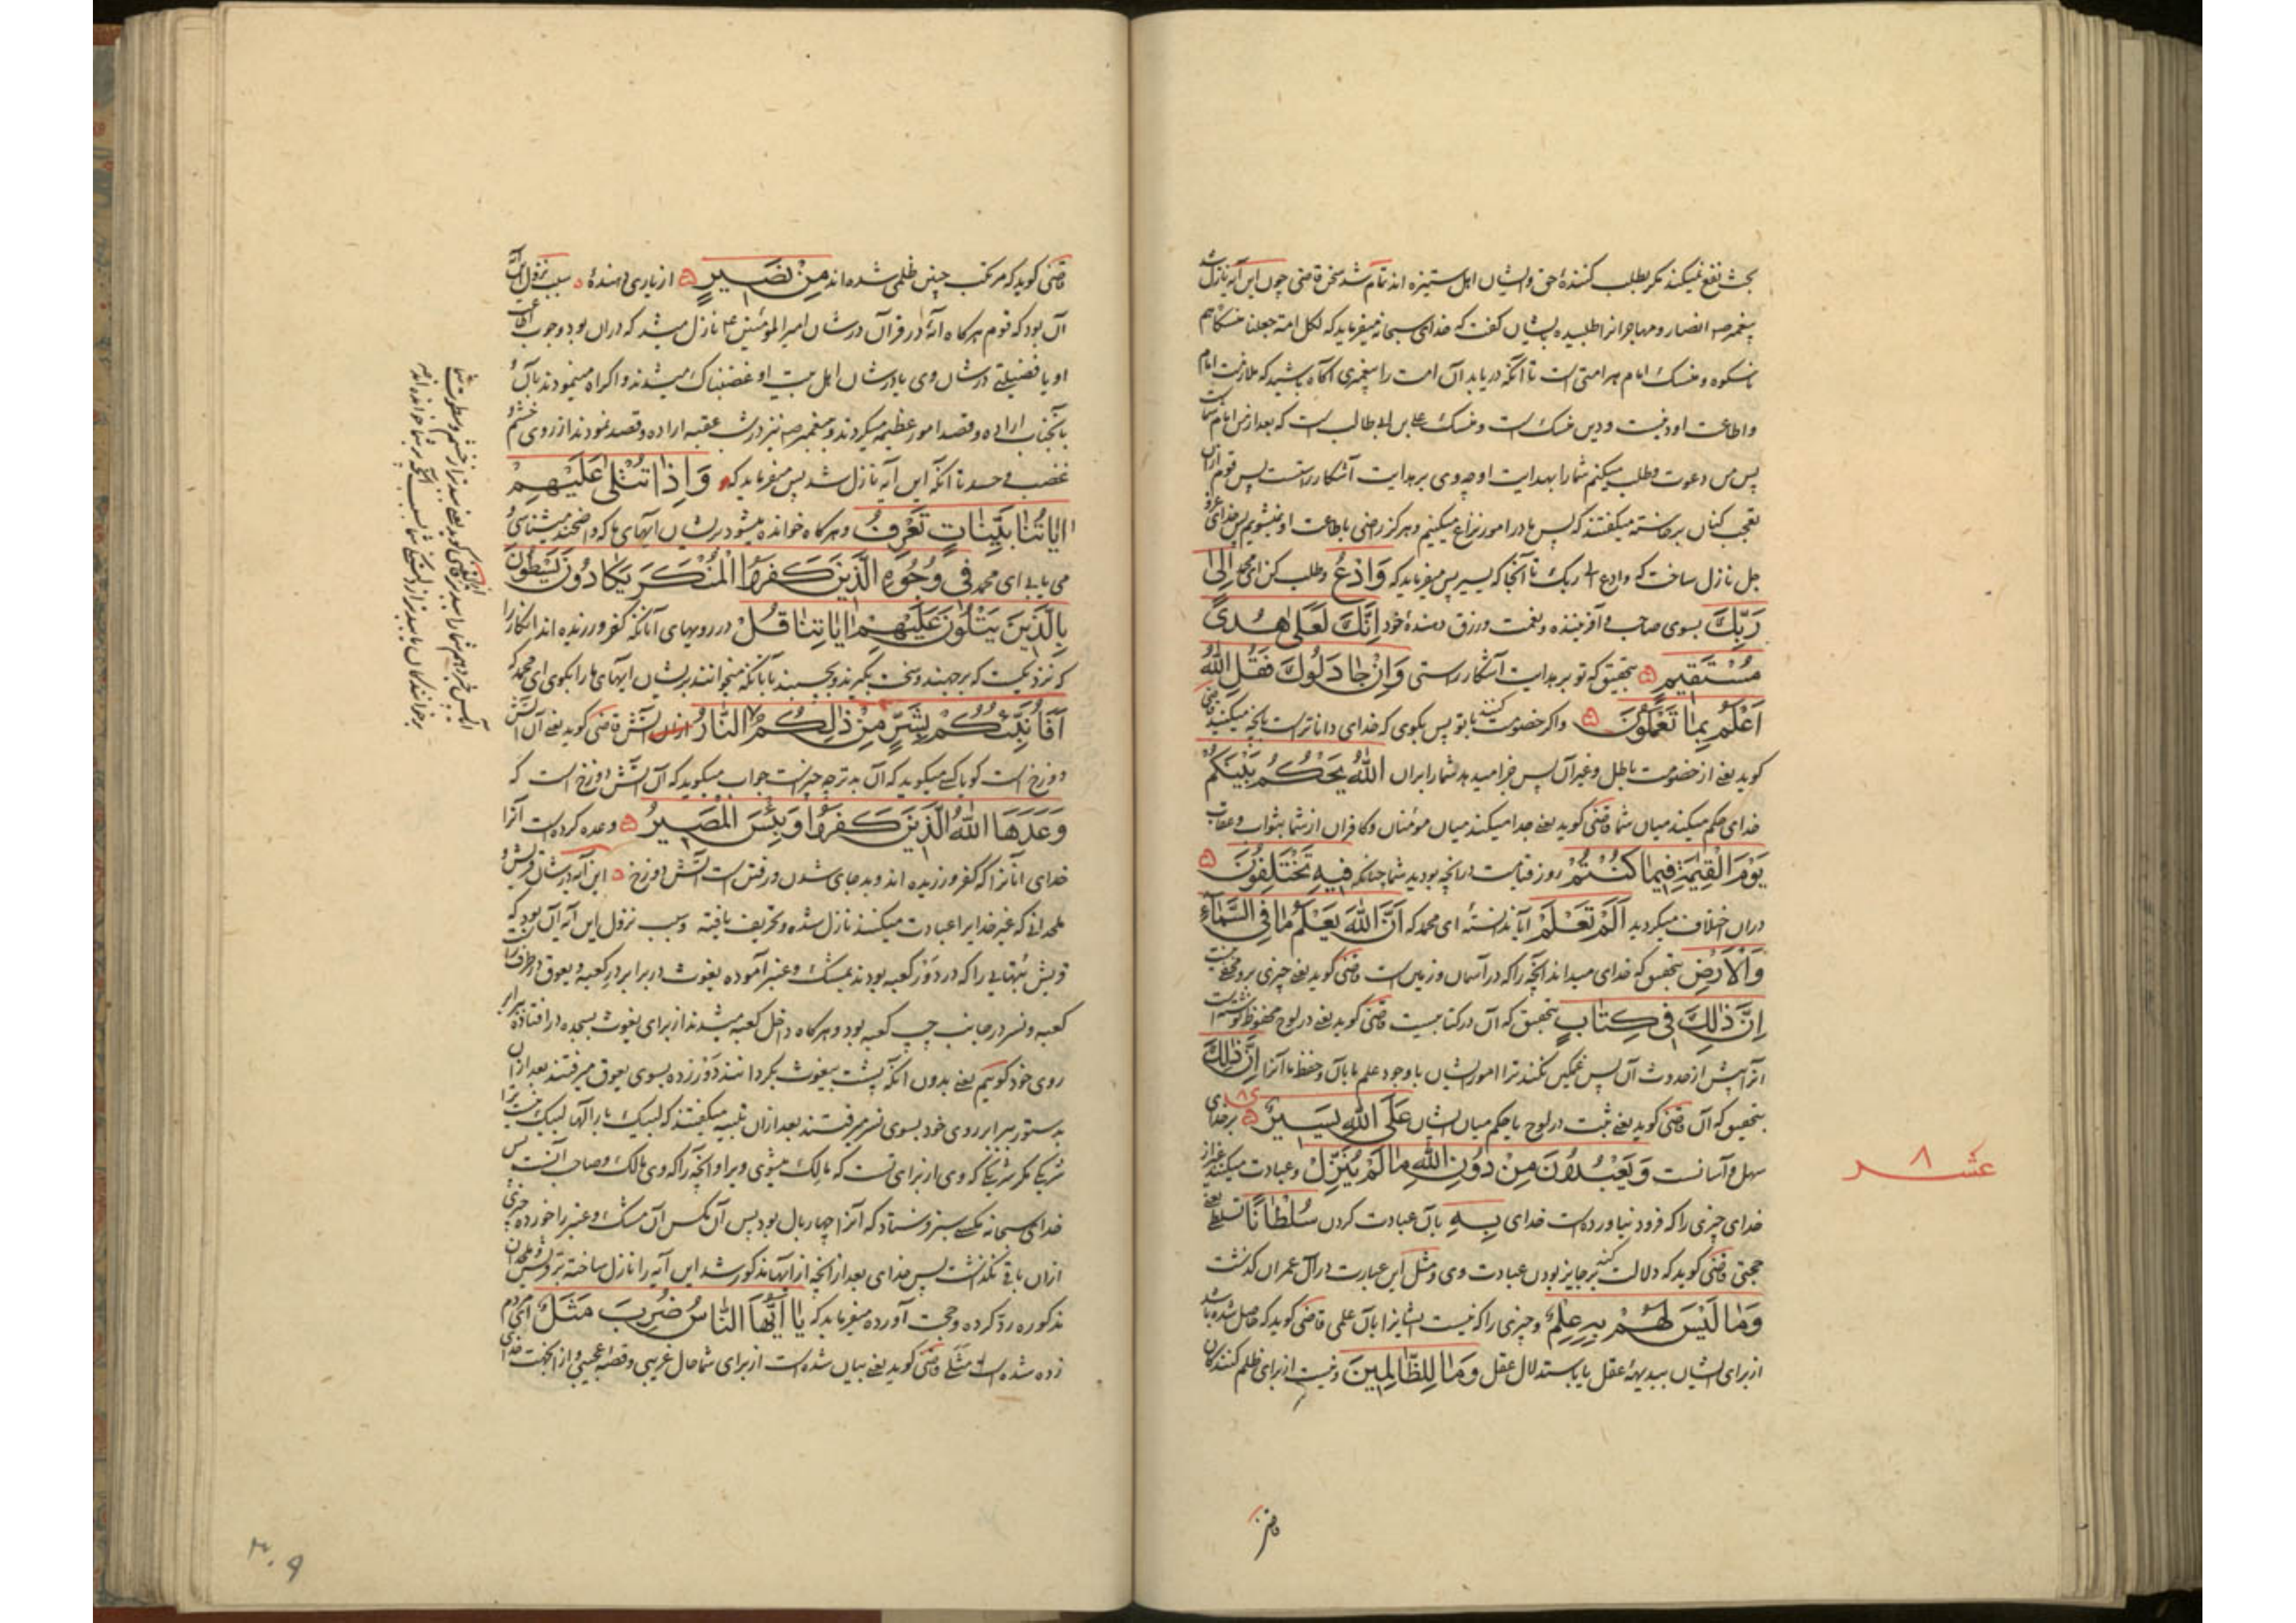 بحث نفع نمیکند مکر بطلب کنندهٔ حق و ایشان اهل ستیزه اند تمام شد سخن قاضی چون این آیه نازل شد
پیغمبر صه انصار و مهاجر انرا طلبیده بایشان کفت که خدای سبحانه میفرماید که لکل امة جعلنا منسکا هم
ناسکوه و منسک امام هر امتی است تا آنکه دریابد آن امت را پیغمبری آکاه باشید که ملازمت امام
و اطاعت او دینست و دین منسک است و منسک علی بن ابی طالب است که بعد از من امام شماست
پس من دعوت و طلب میکنم شما را بهدایت او چه وی بر هدایت آشکار راستست پس قوم ازان
تعجب کنان برخاسته میکفتند که پس ما در امور نزاع میکنیم و هرکز راضی باطاعت او نمیشویم پس خدای عز و
جل نازل ساخت که وادع الی ربک تا آنجا که یسیر پس میفرماید که وَادْعُ و طلب کن ای محمد اِلیٰ
رَبِّكَ بسوی صاحب و آفریننده و نعمت و رزق دهندهٔ خود اِنَّكَ لَعَلیٰ هُدیً
مُسْتَقیمٍ بتحقیق که تو بر هدایت آشکار راستی وَاِنْ جٰادَلُوكَ فَقُلِ اللّٰهُ
اَعْلَمُ بِمٰا تَعْمَلُونَ و اکر خصومت کنند با تو پس بکوی که خدای داناتر است بانچه میکنید قاضی
کوید یعنی از خصومت باطل و غیر آن پس جزا میدهد شما را بران اَللّٰهُ یَحْكُمُ بَیْنَكُمْ
خدای حکم میکند میان شما قاضی کوید یعنی جدا میکند میان مؤمنان و کافران از شما بثواب و عقاب
یَوْمَ الْقِیٰمَةِ فیمٰا كُنْتُمْ روز قیامت در انچه بودید شما چنانکه فیهِ تَخْتَلِفُونَ
دران اختلاف میکردید اَلَمْ تَعْلَمْ آیا ندانستهٔ ای محمد که اَنَّ اللّٰهَ یَعْلَمُ مٰا فِی السَّمٰاۤءِ
وَالْاَرْضِ بتحقیق که خدای میداند آنچه را که در آسمان و زمین است قاضی کوید یعنی چیزی بر وی مخفی نیست
اِنَّ ذٰلِكَ فی كِتٰابٍ بتحقیق که آن در کتابیست قاضی کوید یعنی در لوح محفوظ نوشته است
انرا پیش از حدوث آن پس غمکین نکند ترا امور ایشان با وجود علم ما بآن و حفظ ما آنرا اِنَّ ذٰلِكَ
بتحقیق که آن قاضی کوید یعنی ثبت در لوح یا حکم میان ایشان عَلَی اللّٰهِ یَسیرٌ بر خدای
سهل و آسانست وَیَعْبُدُونَ مِنْ دُونِ اللّٰهِ مٰا لَمْ یُنَزِّلْ و عبادت میکنند غیر از
خدای چیزی را که فرود نیاورده است خدای بِهِ بآن عبادت کردن سُلْطٰانًا تسلطی یعنی
حجتی قاضی کوید که دلالت کند بر جایز بودن عبادت وی و مثل این عبارت در آل عمران کذشت
وَمٰا لَیْسَ لَهُمْ بِهِ عِلْمٌ و چیزی را که نیست ایشانرا بآن علمی قاضی کوید که حاصل شده باشد
از برای ایشان ببدیههٔ عقل یا باستدلال عقل وَمٰا لِلظّٰالِمینَ و نیست از برای ظلم کنندکان
عشر ۸
قاضی کوید که مرتکب چنین ظلمی شده اند مِنْ نَصیرٍ از یاری دهندهٔ سبب نزول این آیه
آن بود که قوم هرکاه آیهٔ در قرآن در شان امیر المؤمنین ع نازل میشد که دران بود وجوب اطاعت
او یا فضیلتی در شان وی یا در شان اهل بیت او غضبناک میشدند و اکراه مینمودند بآن و
بآنجناب اراده و قصد امور عظیمه میکردند و بپیغمبر صه نیز در شب عقبه اراده و قصد نمودند از روی خشم و
غضب و حسد تا آنکه این آیه نازل شد پس میفرماید که وَاِذٰا تُتْلیٰ عَلَیْهِمْ
اٰیٰاتُنٰا بَیِّنٰاتٍ تَعْرِفُ و هرکاه خوانده میشود بر ایشان آیهای ما که واضحند میشناسی و
می یابی ای محمد فی وُجُوهِ الَّذینَ كَفَرُوا الْمُنْكَرَ یَكٰادُونَ یَسْطُونَ
بِالَّذینَ یَتْلُونَ عَلَیْهِمْ اٰیٰاتِنٰا قُلْ در رویهای آنانکه کفر ورزیده اند انکار را
که نزدیکست که برجهند و سخت بکیرند و بچسبند بآنانکه میخوانند بر ایشان ایهای ما را بکوی ای محمد که
اَفَاُنَبِّئُكُمْ بِشَرٍّ مِنْ ذٰلِكُمُ النّٰارُ آتش قاضی کوید یعنی آن آتش
دوزخ است کویا کسی میکوید که آن بدتر چه چیز است جواب میکوید که آن آتش دوزخ است که
وَعَدَهَا اللّٰهُ الَّذینَ كَفَرُوا وَبِئْسَ الْمَصیرُ وعده کرده است آنرا
خدای آنانرا که کفر ورزیده اند و بد جای شدن و رفتن است آتش دوزخ این آیه در شان قریش و
ملحدانی که غیر خدایرا عبادت میکنند نازل شده و تحریف یافته و سبب نزول این آیه آن بود که
قریش بتهایی را که در دور کعبه بودند بمشک و عنبر آموده یغوث در برابر در کعبه و یعوق در طرف راست
کعبه و نسر در جانب چپ کعبه بود و هرکاه داخل کعبه میشدند از برای یغوث بسجده در افتاده برابر
روی خود کوییم یعنی بدون انکه پشت بیغوث بکردانند دور زده بسوی یعوق میرفتند بعد ازان
بدستور برابر روی خود بسوی نسر میرفتند بعد ازان تلبیه میکفتند که لبیک بار الٰها لبیک نیست ترا
شریکی مکر شریکی که وی از برای تست که مالک میشوی ویرا و انچه را که وی مالک و صاحب آنست پس
خدای سبحانه مکسی سبز فرستاد که آنرا چهار بال بود پس آن مکس آن مشک و عنبر را خورده چیزی
ازان باقی نکذاشت پس خدای بعد از انچه از ایها مذکور شد این آیه را نازل ساخته بر قریش و ملحدان
مذکوره رد کرده و حجت آورده میفرماید که یٰا اَیُّهَا النّٰاسُ ضُرِبَ مَثَلٌ ای مردم
زده شده است مثلی قاضی کوید یعنی بیان شده است از برای شما حال غریبی و قصهٔ عجیبی و از اینجهت خدای
۳۰۹